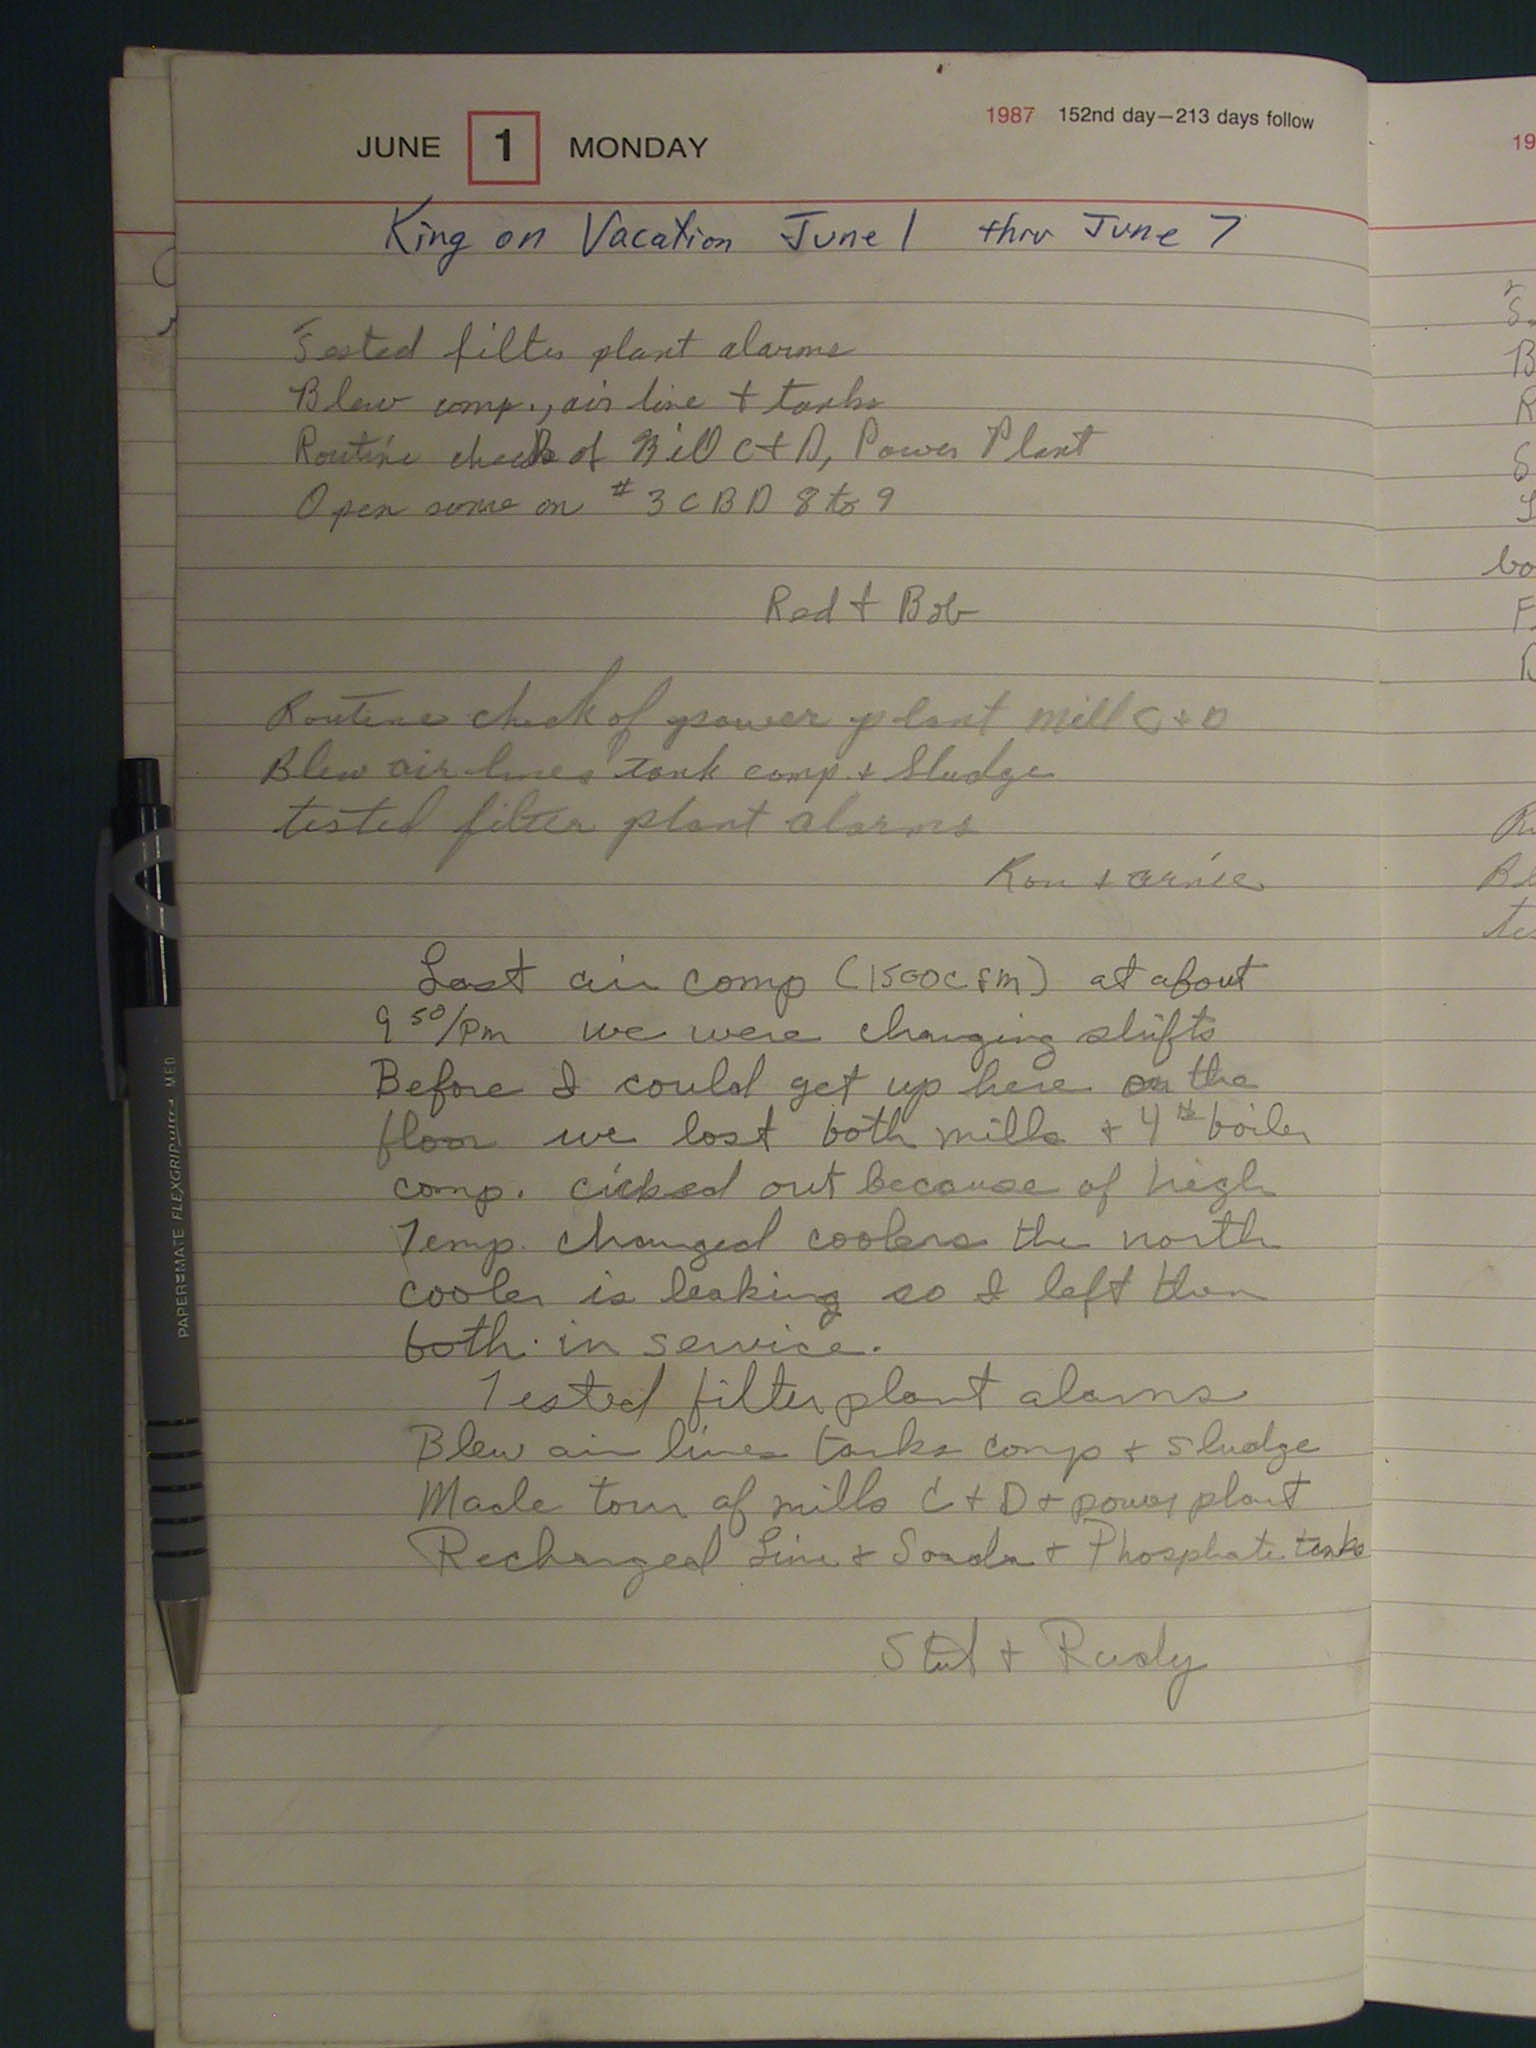 1987 152nd day—213 days follow
JUNE 1 MONDAY
King on Vacation June 1 thru June 7
Tested filter plant alarms
Blew comp., air line + tanks
Routine check of Mill C + D, Power Plant
Open some on #3 CBD 8 to 9
Red + Bob
Routine check of power plant mill C + D
Blew air lines tank comp. + Sludge
tested filter plant alarms
Ron + arnie
Lost air comp (1500 cfm) at about
9 50/Pm we were changing shifts
Before I could get up here on the
floor we lost both mills + 4th boiler
comp. cicked out because of high
Temp. changed coolers the north
cooler is leaking so I left them
both in service.
Tested filter plant alarms
Blew air lines tanks comp + sludge
Made tour of mills C + D + power plant
Recharged Lime + Soada + Phosphate tanks
+ Rudy
PAPER MATE FLEXGRIP ULTRA MED
19